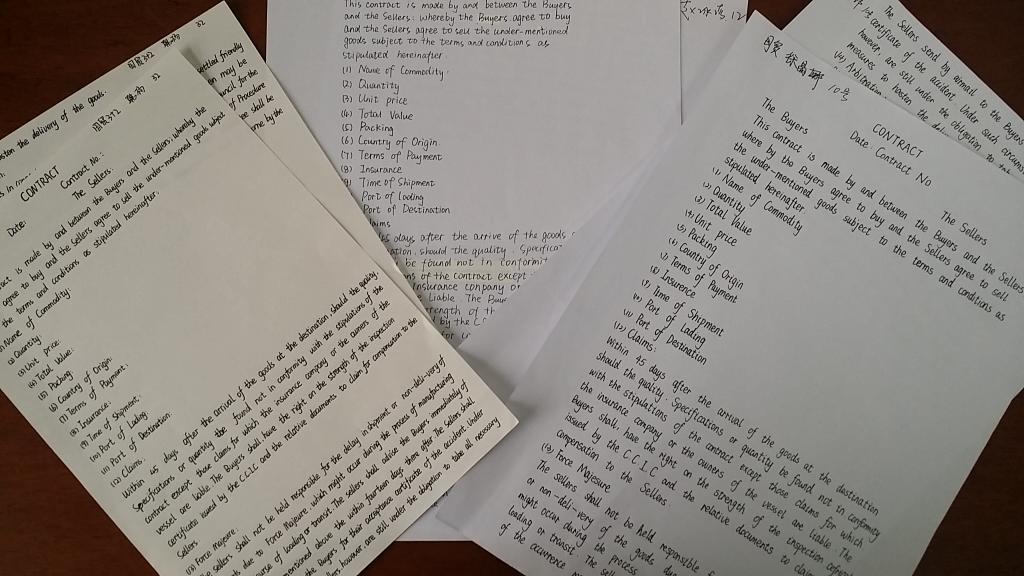 32
司贸312
32
司贸312
sion the delivery of the goods.
CONTRACT
Contract No.:
Date:
The Sellers.
act is made by and between the Buyers and the Sellers, whereby the
agree to buy and the Sellers agree to sell the under-mentioned goods subject
the terms and conditions as stipulated hereinafter:
(1) Name of Commodity
Quantity
(3) Unit price
(4) Total Value
(5) Packing
(6) Country of Origin
(7) Terms of Payment.
(8) Insurance:
(9) Time of Shipment.
(10) Port of Lading:
(11) Port of Destination:
(12) Claims:
Within 45 days after the arrival of the goods at the destination, should the quality,
Specifications or quantity be found not in conformity with the stipulations of the
contract except those claims for which the insurance company or the owners of the
vessel are liable. The Buyers shall have the right on the strength of the inspection
certificate issued by the C.C.I.C and the relative documents to claim for compensation to the
Sellers
(13) Force Majeure:
The sellers shall not be held responsible for the delay in shipment or non-deli-very of
goods due to Force Majeure, which might occur during the process of manufacturing
course of loading or transit. The sellers shall advise the Buyers immediately of
mentioned above the within fourteen days there after. The Sellers shall
the Buyers for their acceptance certificate of the accident. Under
Sellers however are still under the obligation to take all necessary
settled friendly
may be
for the
of Procedure
shall be
by the
This contract is made by and between the Buyers
and the Sellers: whereby the Buyers agree to buy
and the Sellers agree to sell the under-mentioned
goods subject to the terms and conditions as
stipulated hereinafter.
(1) Name of Commodity.
(2) Quantity
(3) Unit price
(4) Total Value
(5) Packing
(6) Country of Origin
(7) Terms of Payment
(8) Insurance
Time of Shipment
Port of Lading
Port of Destination
days after the arrive of the goods
should the quality, Specifica
be found not in conformit
of the contract except
insurance company or
liable. The Buy
strength of th
by the C.C
12
10号
CONTRACT
Date: Contract No
The Buyers
The Sellers
This contract is made by and between the Buyers and the Sellers
where by the Buyers agree to buy and the Sellers agree to sell
the under-mentioned goods subject to the terms and conditions as
stipulated hereinafter.
(1) Name of Commodity
(2) Quantity
(3) Total Value
(4) Unit price
(5) Packing
(6) Country of Origin
(7) Terms of Payment
(8) Insurence
(9) Time of Shipment
(10) Port of Lading
(11) Port of Destination
(12) Claims:
Within 45 days after the arrival of the goods at the destination
should the quality. Specifications or quantity be found not in conformity
with the stipulations of the contract except those claims for which
the insurance company or the owners of the vessel are liable. The
Buyers shall have the right on the strength of the inspection
issued by the C.C.I.C and the relative documents to claim
compensation to the Sellers
(13) Force Majesure
The Sellers shall not be held responsible
or non-deli-very of the goods
might occur during the process
loading or transit. The sell
of the occurrence
The Sellers send by airmail to the Buyers
certificate of the accident. Under such
however are still under the obligation to
measures to hasten the